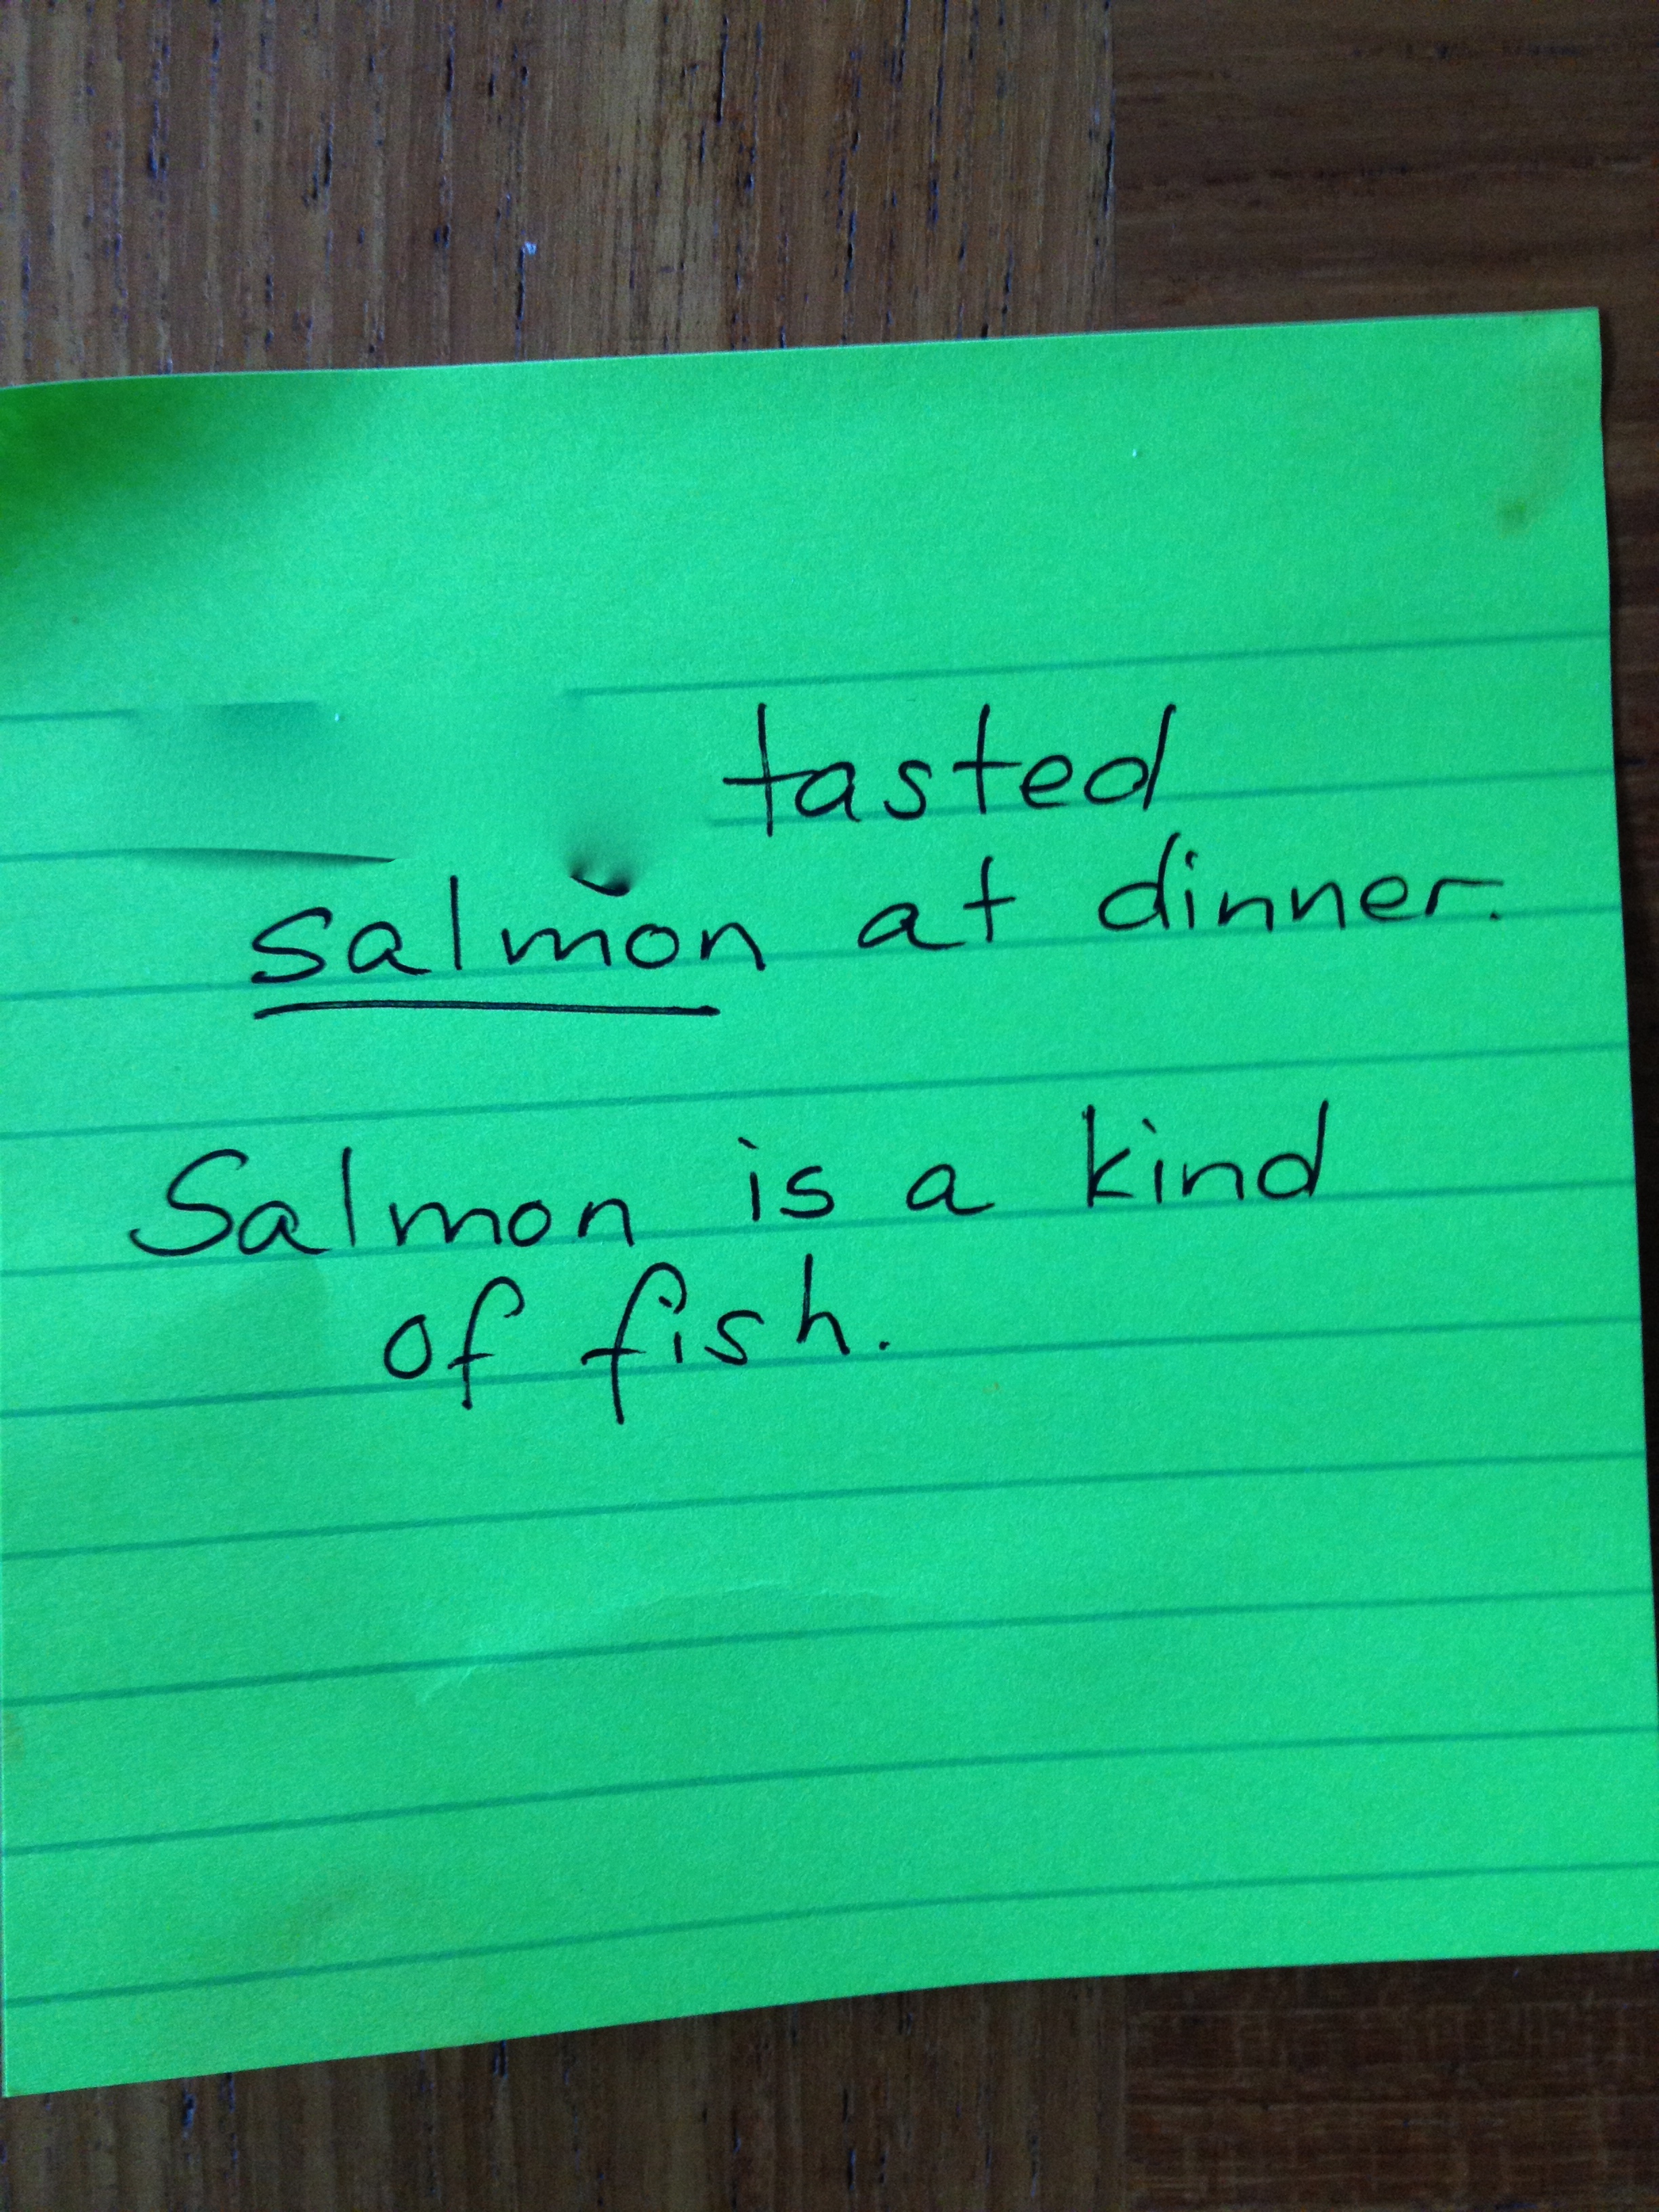 tasted
salmon at dinner.
Salmon is a kind
of fish.